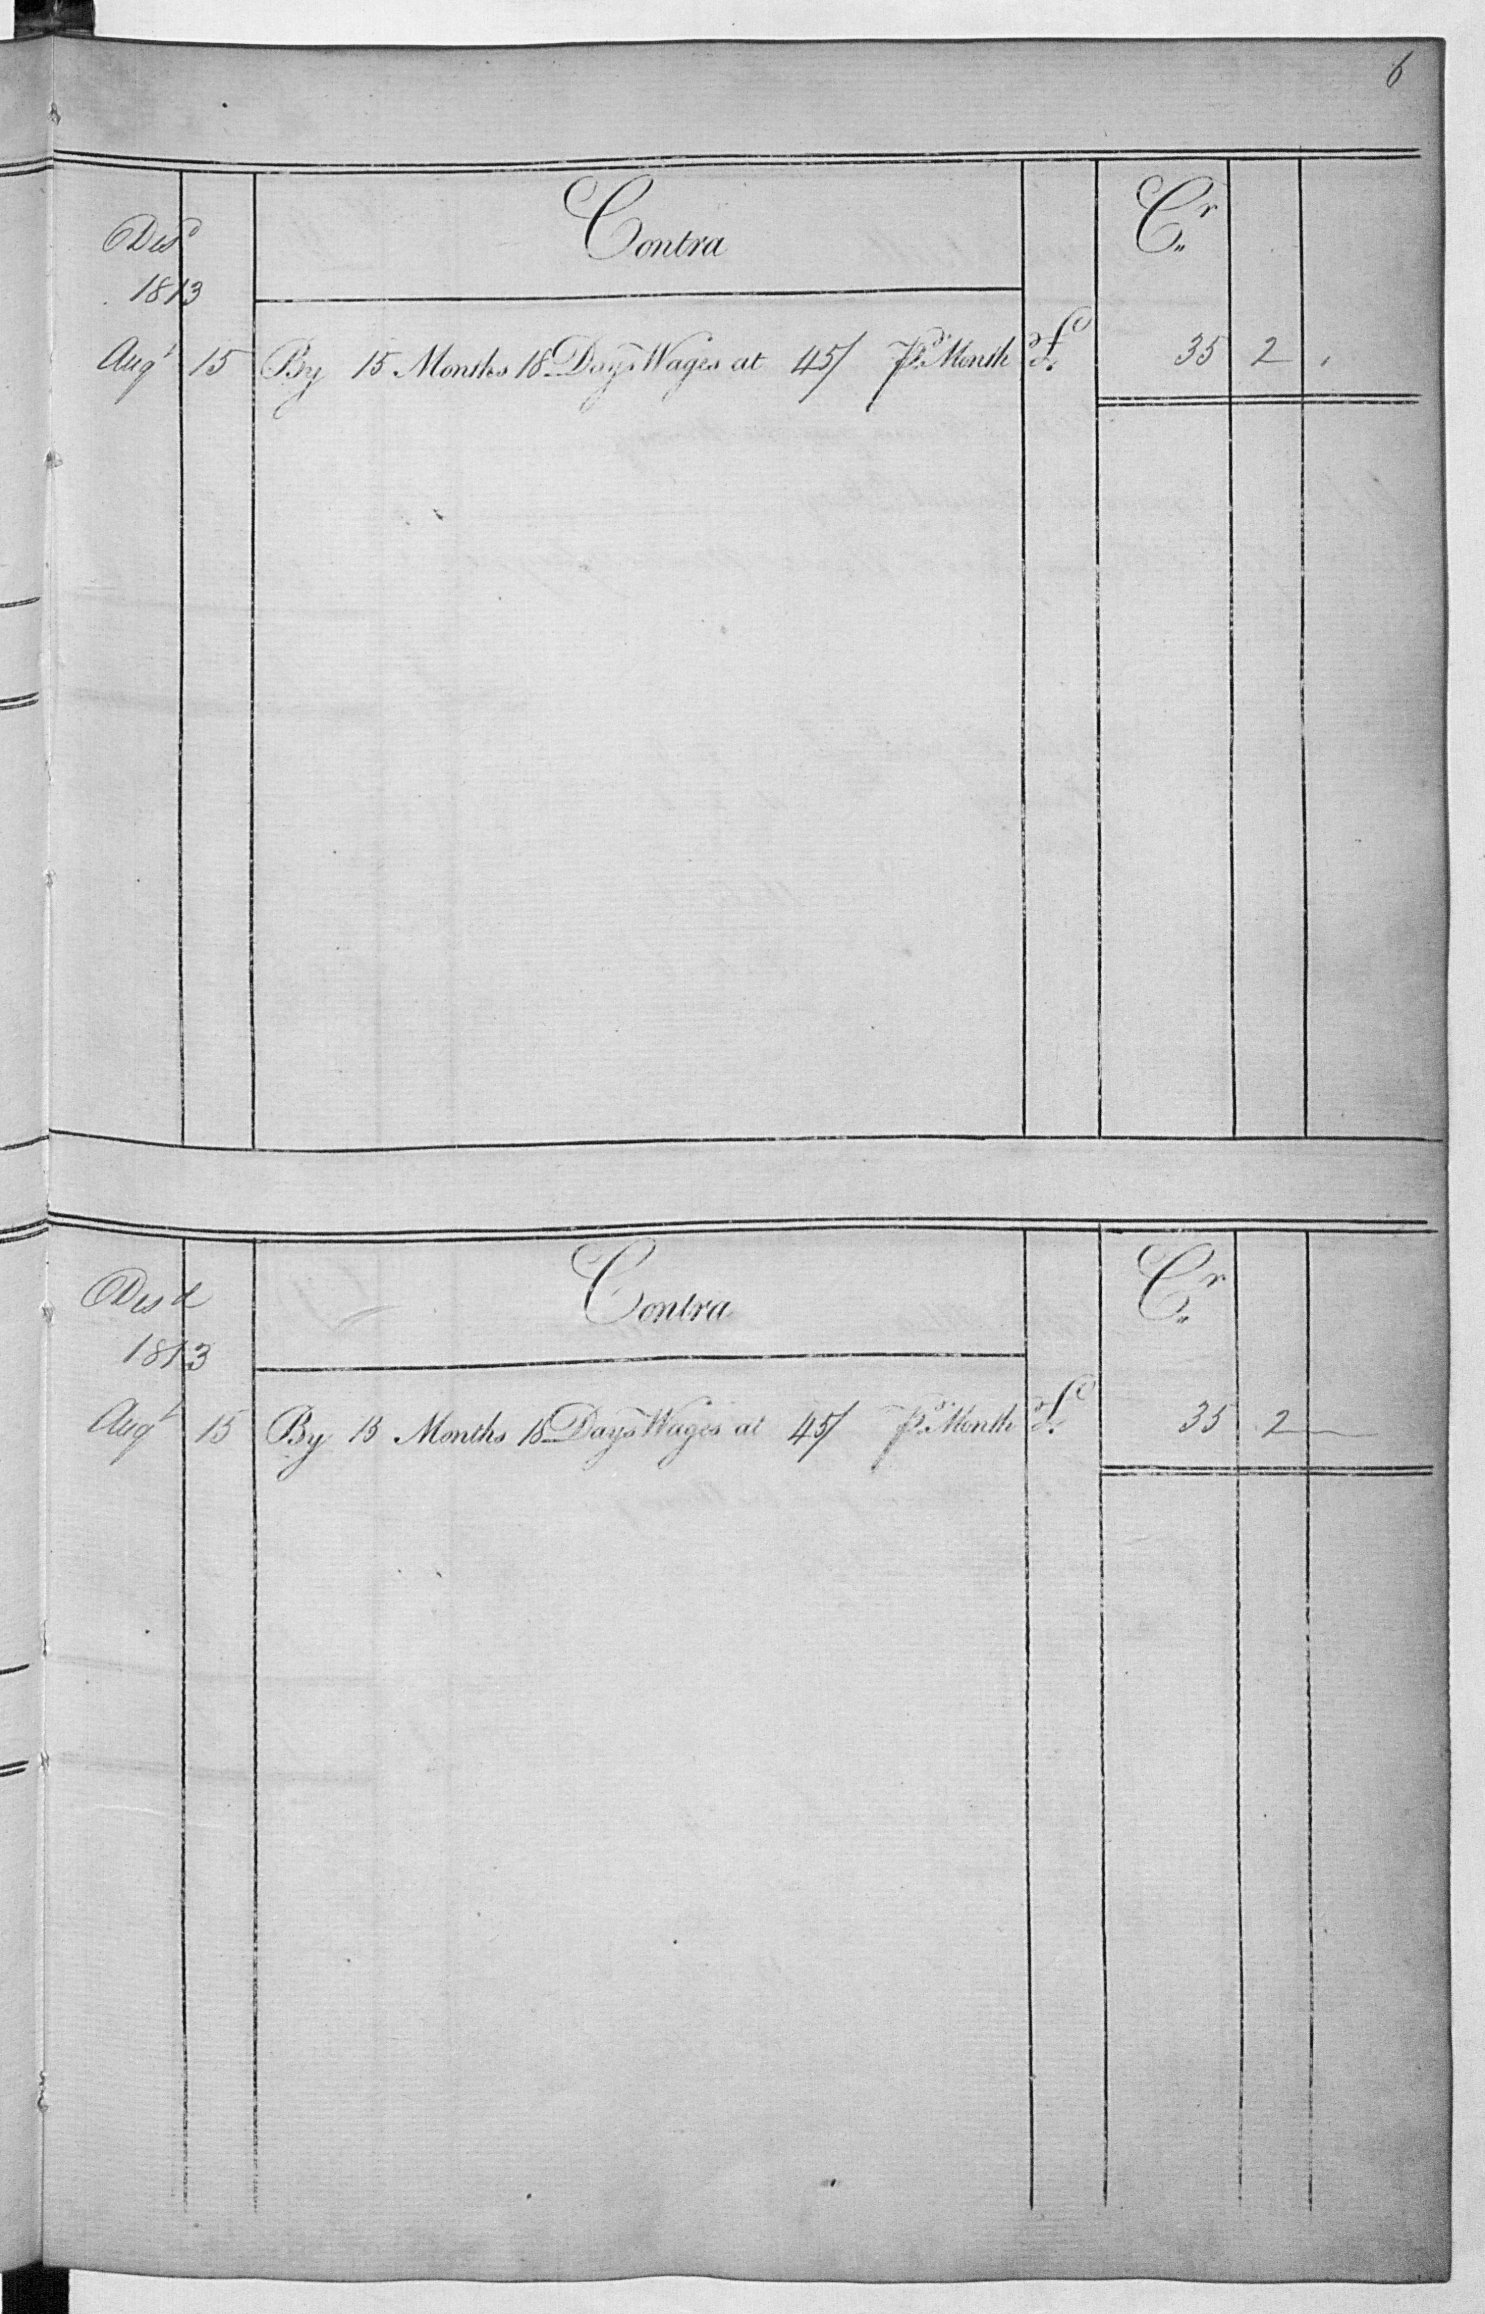 6
Contra Cr
Desd
1813
Augt 15 By 15 Months 18 Days Wages at 45/ Pr Month £ 35 2 ,
Contra Cr
Desd
1813
Augt 15 By 15 Months 18 Days Wages at 45/ Pr Month £ 35 2 —